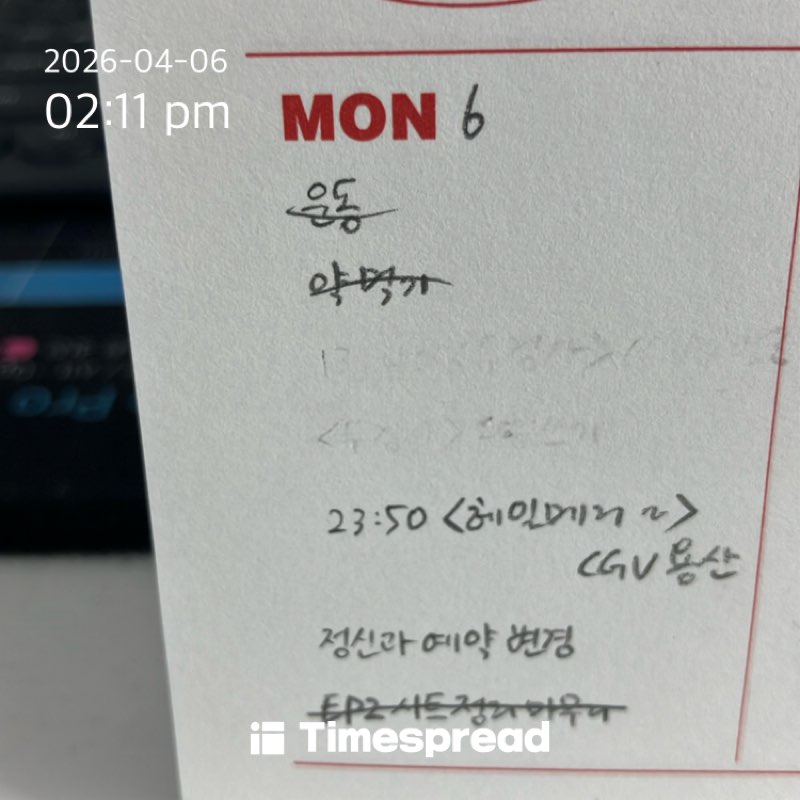 2026-04-06
02:11 pm
MON 6
운동
약 먹기
23:50 <헤일메리 ~>
CGV 용산
정신과 예약 변경
EP2 시트 정리 마무리
Timespread